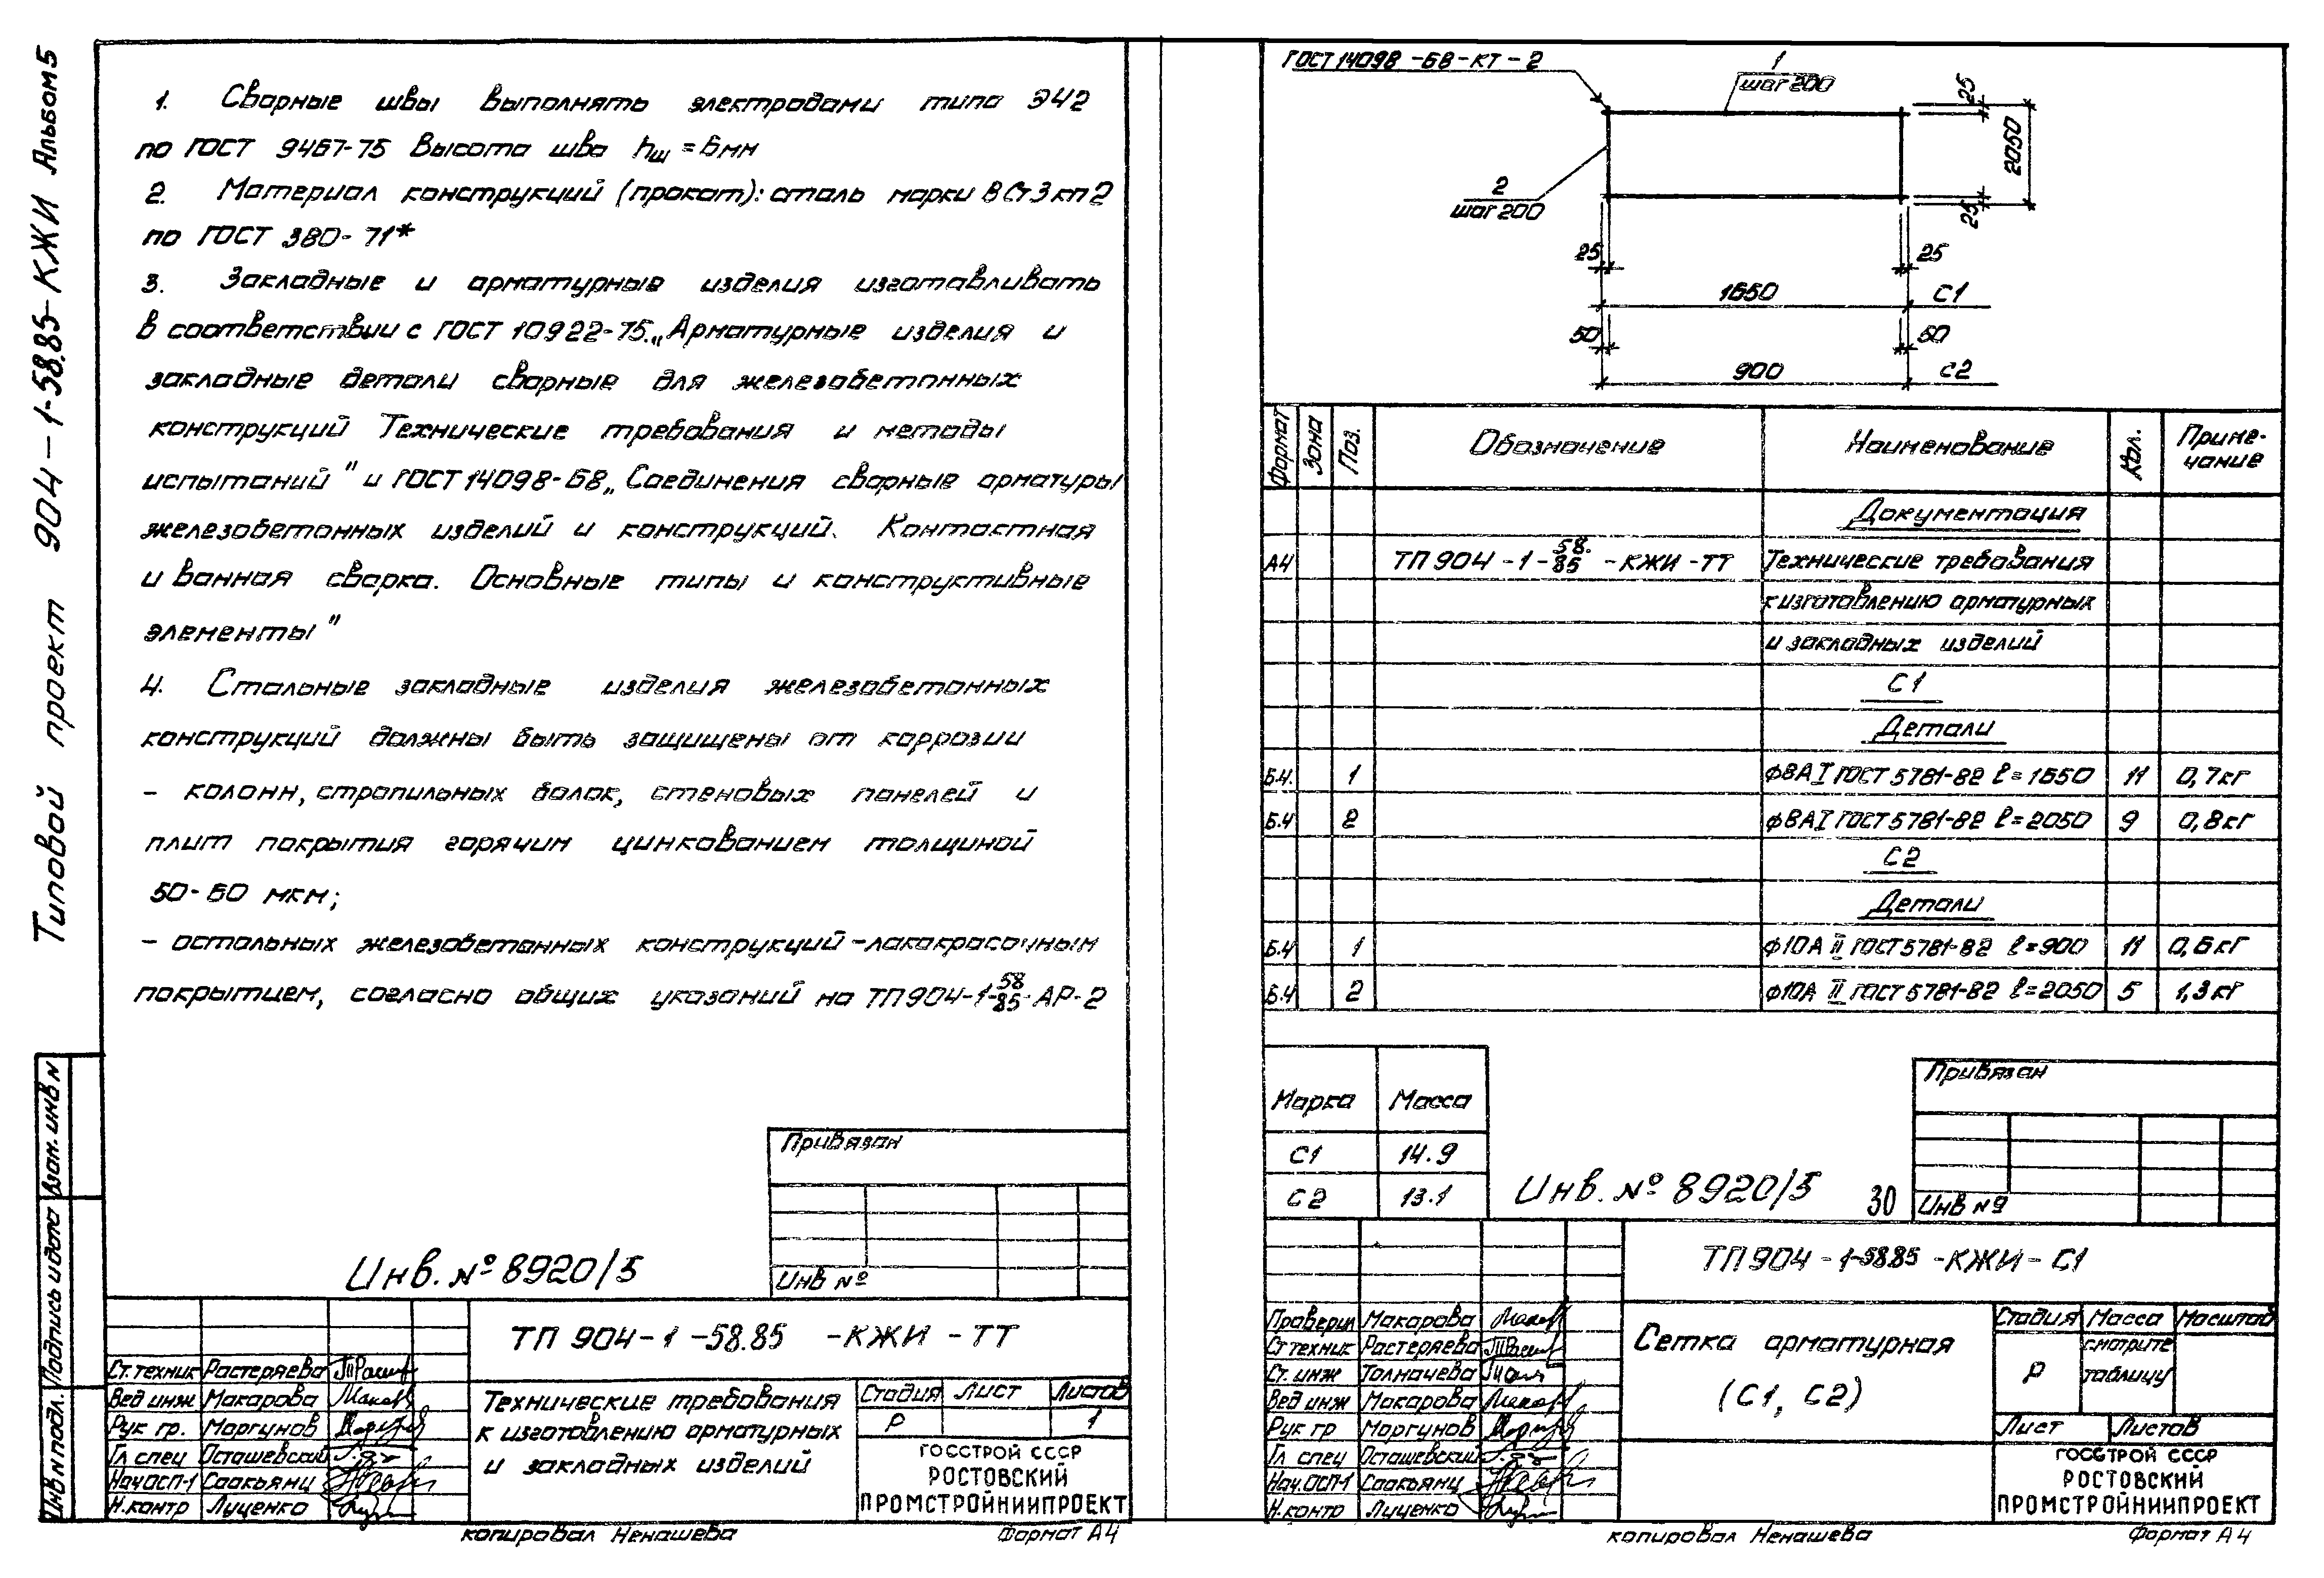 Типовой проект 904-1-58.85-КЖИ Альбом 5
1. Сварные швы выполнять электродами типа Э42
по ГОСТ 9467-75 Высота шва hш = 6мм
2. Материал конструкций (прокат): сталь марки ВСт3кп2
по ГОСТ 380-71*
3. Закладные и арматурные изделия изготавливать
в соответствии с ГОСТ 10922-75. „Арматурные изделия и
закладные детали сварные для железобетонных
конструкций Технические требования и методы
испытаний" и ГОСТ 14098-68 „Соединения сварные арматуры
железобетонных изделий и конструкций. Контактная
и ванная сварка. Основные типы и конструктивные
элементы"
4. Стальные закладные изделия железобетонных
конструкций должны быть защищены от коррозии
- колонн, стропильных балок, стеновых панелей и
плит покрытия горячим цинкованием толщиной
50-60 мкм;
- остальных железобетонных конструкций - лакокрасочным
покрытием, согласно общих указаний на ТП904-1-58.85-АР-2
Взам. инв N
Подпись и дата
Инв N подл.
Привязан
Инв №
Инв. № 8920/5
ТП 904-1-58.85 -КЖИ - ТТ
Ст.техник Растеряева
Вед инж Макарова
Рук гр. Моргунов
Гл спец Осташевский
Нач ОСП-1 Саакьянц
Н.контр Луценко
Технические требования
к изготовлению арматурных
и закладных изделий
Стадия Лист Листов
Р 1
ГОССТРОЙ СССР
РОСТОВСКИЙ
ПРОМСТРОЙНИИПРОЕКТ
копировал Ненашева Формат А4
ГОСТ 14098-68-КТ-2
1
шаг 200
2
шаг 200
25
2050
25
25 25
1650 С1
50 50
900 С2
Формат Зона Поз. Обозначение Наименование Кол. Приме-
чание
Документация
А4 ТП904-1-58.85 -КЖИ-ТТ Технические требования
к изготовлению арматурных
и закладных изделий
С1
Детали
Б.4. 1 ф8АI ГОСТ 5781-82 ℓ=1650 11 0,7кг
Б.4 2 ф8АI ГОСТ 5781-82 ℓ=2050 9 0,8кг
С2
Детали
Б.4 1 ф10А II ГОСТ 5781-82 ℓ=900 11 0,6кг
Б.4 2 ф10А II ГОСТ 5781-82 ℓ=2050 5 1,3кг
Марка Масса
С1 14.9
С2 13.1
Инв. № 8920/5 30
Привязан
Инв №
ТП904-1-58.85 -КЖИ- С1
Проверил Макарова
Ст техник Растеряева
Ст. инж Толмачева
Вед инж Макарова
Рук гр Моргунов
Гл спец Осташевский
Нач.ОСП-1 Саакьянц
Н.контр Луценко
Сетка арматурная
(С1, С2)
Стадия Масса Масштаб
Р смотрите
таблицу
Лист Листов
ГОССТРОЙ СССР
РОСТОВСКИЙ
ПРОМСТРОЙНИИПРОЕКТ
копировал Ненашева Формат А4